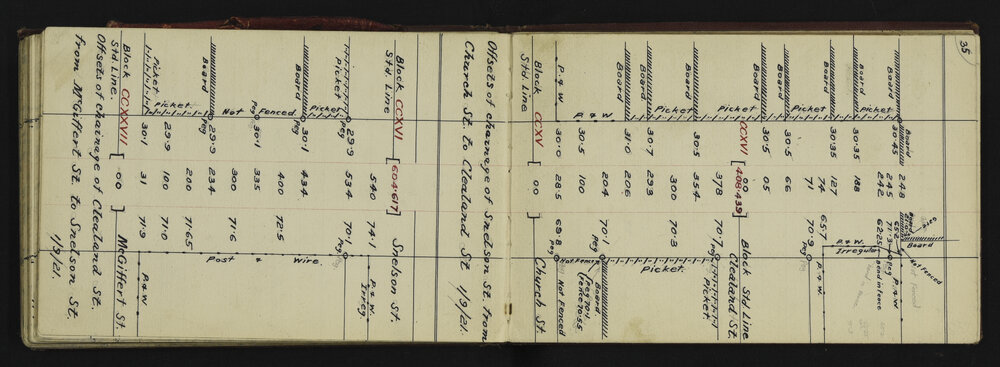 35
Not Fenced
Board
Board 248 P. & W
30·45 245 Bend in fence
242 62·25 Irregular
Board Picket 30·35 188 P. & W
30·35 127 65·7 P. & W
74
Picket 71 70·9 Peg
Board 30·5 66
30·5 05
CCXVI [408·439] Block Std Line
00 Clealand St.
Picket 378 70·7 Peg Picket
Board 30·5 354
300 70·3 Picket.
Board 30·7 293
Board 31·0 206
204 70·1 Board
Peg (Peg 70·1
Fence 70·55
P. & W 30·5 100 Not Fenced
P. & W 28·5
30·0 69·8 Not Fenced
Block CCXV [00 Church St.
Std. Line
Offsets of chainage of Snelson St. from
Church St. to Clealand St 1/9/21.
Block CCXVI [604·617] Snelson St.
Std. Line
540 74·1 P. & W
Irreg
29·9 534 70·1
Peg Peg
Picket
Board Picket 30·1 434
Peg
400 72·5
Not Fenced 30·1 335
Peg
300 71·6
Board 29·9 234
Peg
200 71·65 Post & Wire
Picket 29·9 180 71·0
Picket. 30·1 31 71·9 P. & W
Block CCXVII [00 McGiffert St.
Std. Line
Offsets of chainage of Clealand St.
from McGiffert St. to Snelson St.
1/9/21.